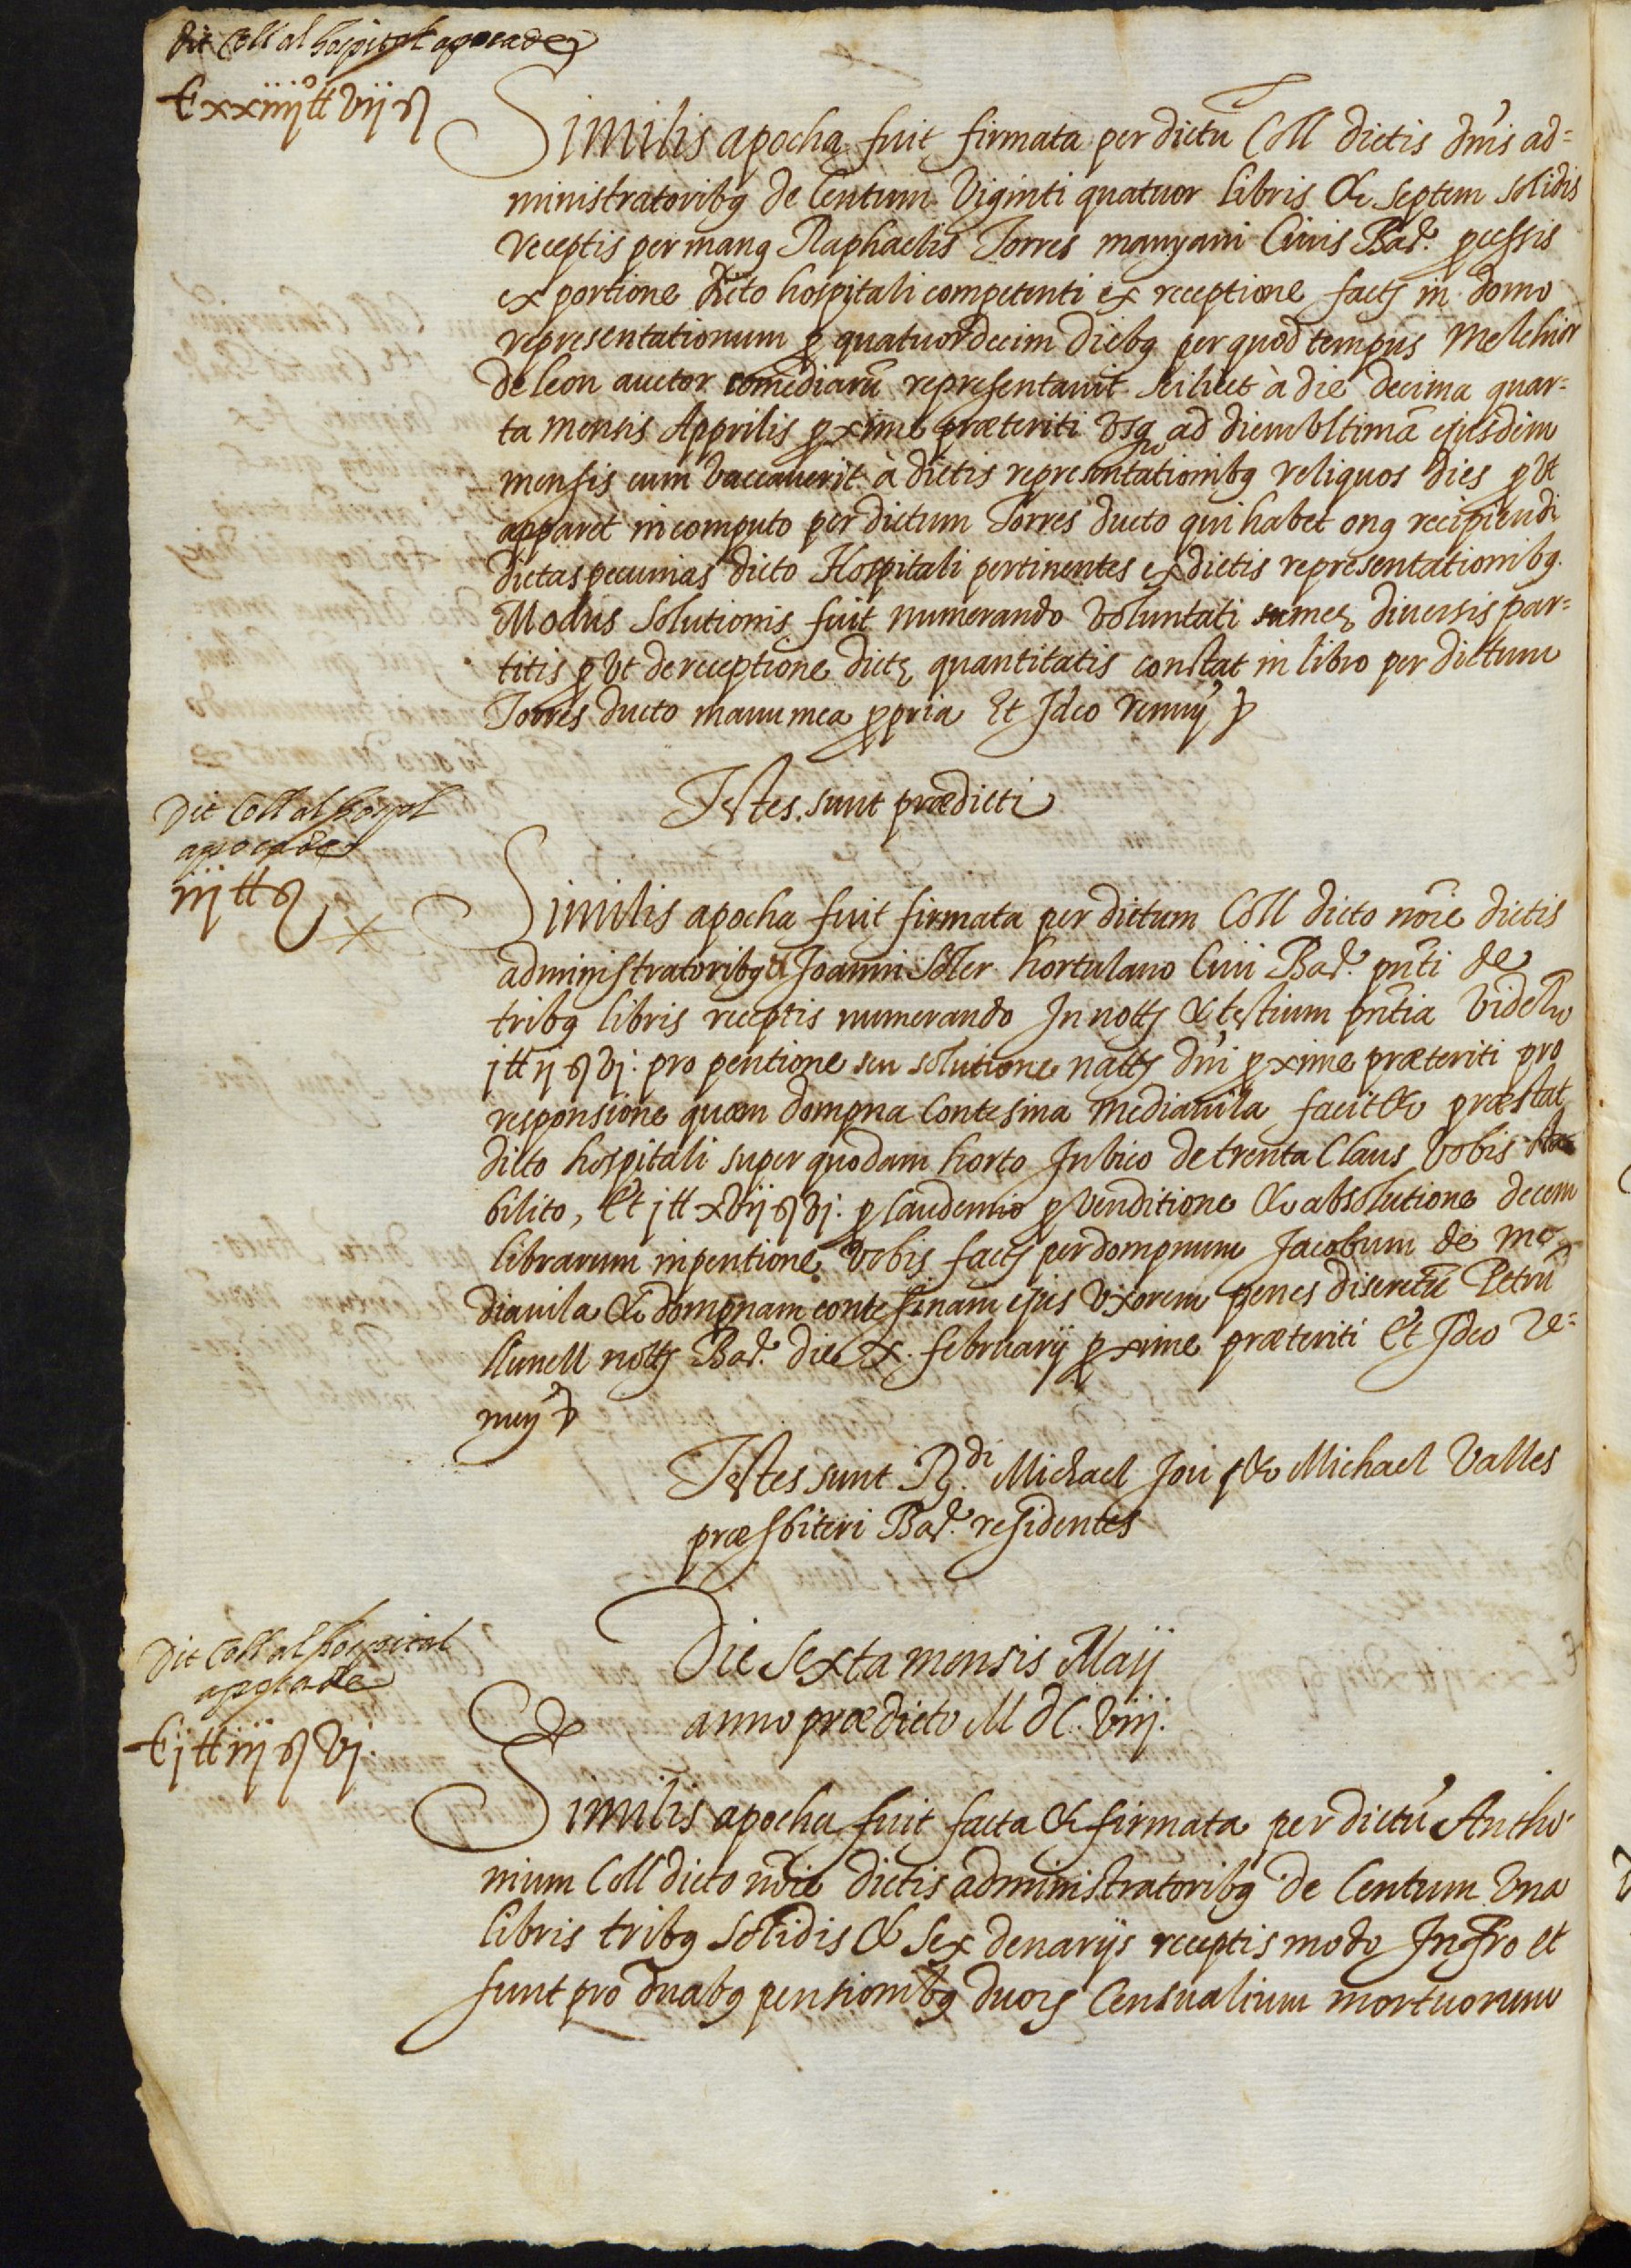 Dit Coll al hospital apoca de
Cxxiiij tt vij ß
Similis apocha fuit firmata per dictũ Coll dictis dñis ad=
ministratoribꝯ de Centum Viginti quatuor libris & septem solidis
receptis per manꝯ Raphaelis Torres manyani Civis Barᵉ. pcessis
ex portione dicto hospitali competenti ex receptione factȝ in domo
representationum ꝓ quatuordecim diebꝯ per quod tempus Melchior
de leon auctor comediarũ representauit scilicet à die decima quar=
ta mensis Apprilis ꝓxime præteriti vsqꝫ ad diem vltimã ejusdem
mensis cum vaccauerit à dictis representationibꝯ reliquos dies ꝓ vt
apparet in computo per dictum Torres ducto qui habet onꝯ recipiendi
dictas pecunias dicto Hospitali pertinentes ex dictis representationibꝯ.
Modus solutionis fuit numerando voluntati meę diuersis par=
titis ꝓ vt de receptione dictę quantitatis constat in libro per dictum
Torres ducto manu mea ꝓpria Et Jdeo renuñ
Testes sunt prædicti
Dit Coll al hospl
apoca de
iij tt ß
Similis apocha fuit firmata per dictum Coll dicto nõie dictis
administratoribꝯ & Joanni Soler hortulano Ciui Barᵉ. pñti de
tribꝯ libris receptis numerando In nottȝ & testium pñtia videlt
j tt ij ß vj: pro pentione seu solutione nattȝ dñi ꝓxime præteriti pro
responsione quam dompna Contesina Mediauila facit & præstat
dicto hospitali super quodam horto In vico de trenta Claus vobis sta
bilito, Et j tt xvij ß vj: ꝓ laudemio ꝓ venditione & absolutione decem
librarum in pentione vobis factȝ per dompnum Jacobum de me
diauila & dompnam contesinam ejus vxorem penes discretũ Petrũ
llunell nottȝ Barᵉ. die x. februarij ꝓxime præteriti Et Jdeo re=
nuñ
Testes sunt Rᵈⁱ. Michael Joui & Michael Valles
præsbiteri Barᵉ. residentes
Die Sexta mensis Maij
anno prædicto M dC. viij.
Dit Coll al hospital
apoca de
Cj tt iij ß vj.
Similis apocha fuit facta & firmata per dictũ Antho=
nium Coll dicto nõie dictis administratoribꝯ de Centum vna
libris tribꝯ solidis & sex denarijs receptis modo Infrõ et
sunt pro duabꝯ pensionibꝯ duorȝ Censualium mortuorum